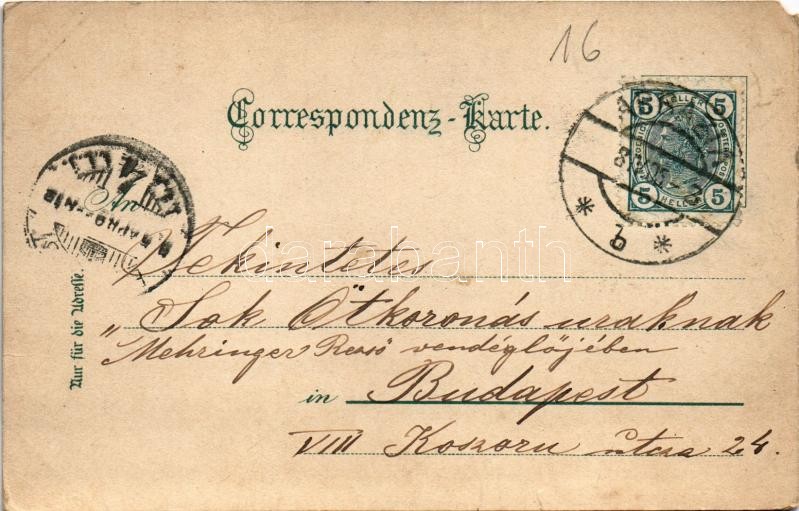 16
Correspondenz-Karte.
5 HELLER 5
5 HELLER 5
b
An
Tekintetes
"Sok Ötkoronás uraknak
Mehringer Rezső vendéglőjében
in Budapest
VIII Koszoru utcza 24.
Nur für die Adresse.
darabanth